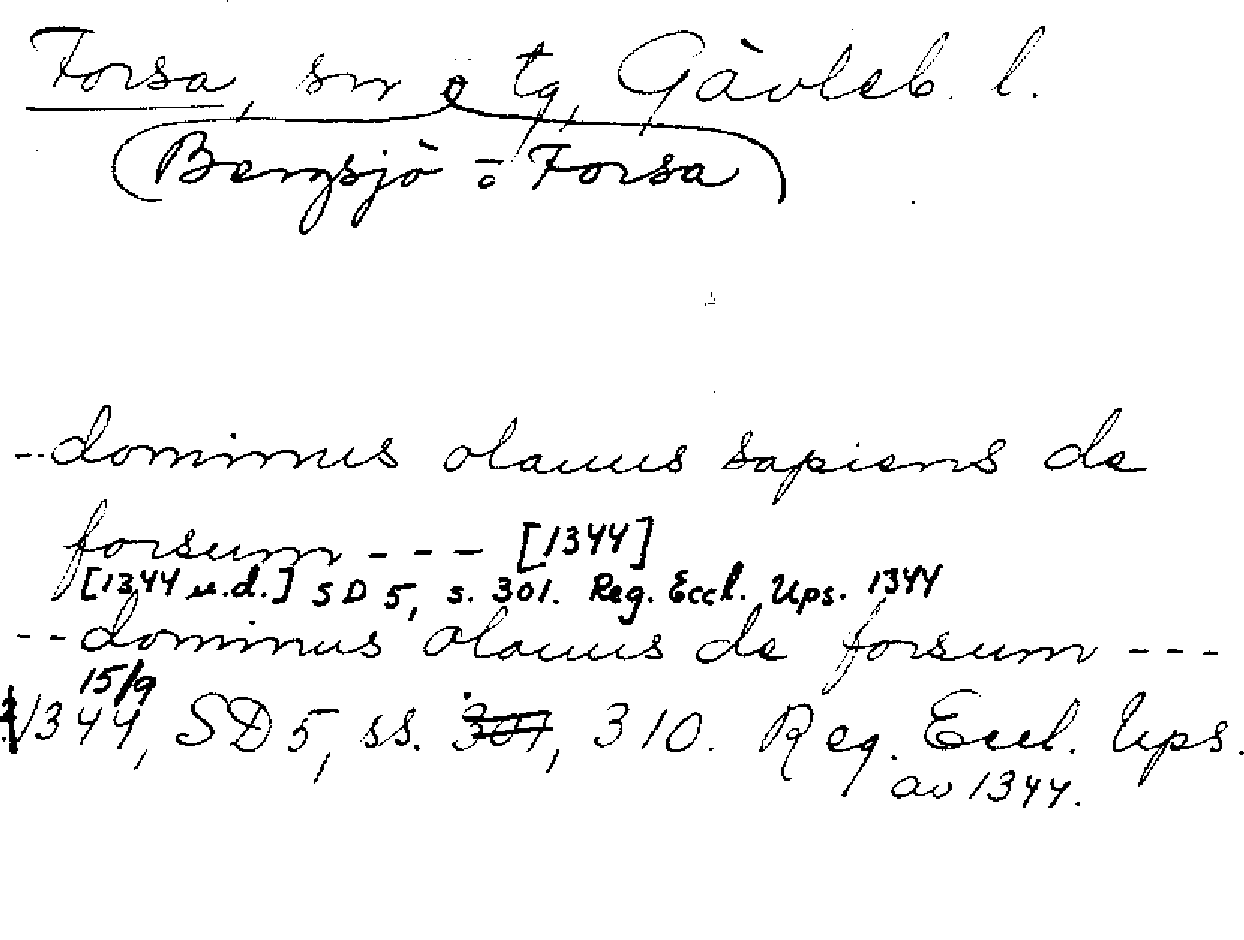 Forsa, sn o tg, Gävleb. l.
(Bergsjö o Forsa)
-- dominus olauus sapiens de
forsum --- [1344]
[1344 u.d.] SD 5, s. 301. Reg. Eccl. Ups. 1344
-- dominus olauus de forsum ---
15/9
1344, SD 5, ss. 301, 310. Reg. Eccl. Ups.
av 1344.